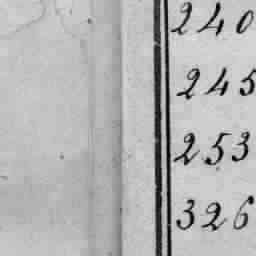 240
245
253
326